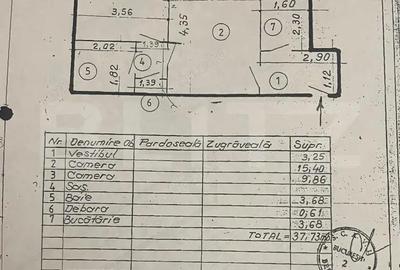 3,56
1,60
4,35
2
7
2,30
2,02
1,39
2,90
5
1,82
4
1,39
1
1,12
6
Nr. Denumire Pardoseală Zugrăveală Supr.
1 Vestibul 3,25
2 Camera 15,40
3 Camera 9,86
4 Sas.
5 Baie 3,68
6 Debara 0,61
7 Bucătărie 3,68
TOTAL= 37,73
BUCUREŞTI
2